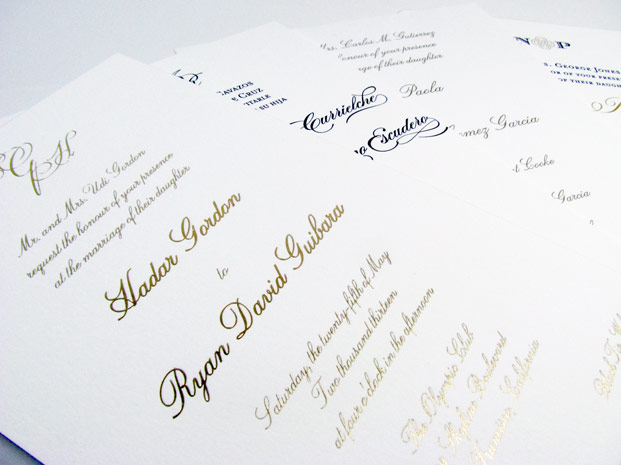 G H
Mr. and Mrs. Udi Gordon
request the honour of your presence
at the marriage of their daughter
Hadar Gordon
to
Ryan David Guibara
Saturday, the twenty fifth of May
Two thousand thirteen
at four o'clock in the afternoon
The Olympic Club
Boulevard
California
AVAZOS
E CRUZ
ITABLE
SU HIJA
rs. Carlos M. Gutierrez
onour of your presence
ge of their daughter
Currielche
Paola
o Escudero
mez Garcia
t Cooke
Garcia
N P
S. GEORGE JONES
OR OF YOUR PRESE
OF THEIR DAUGHTE